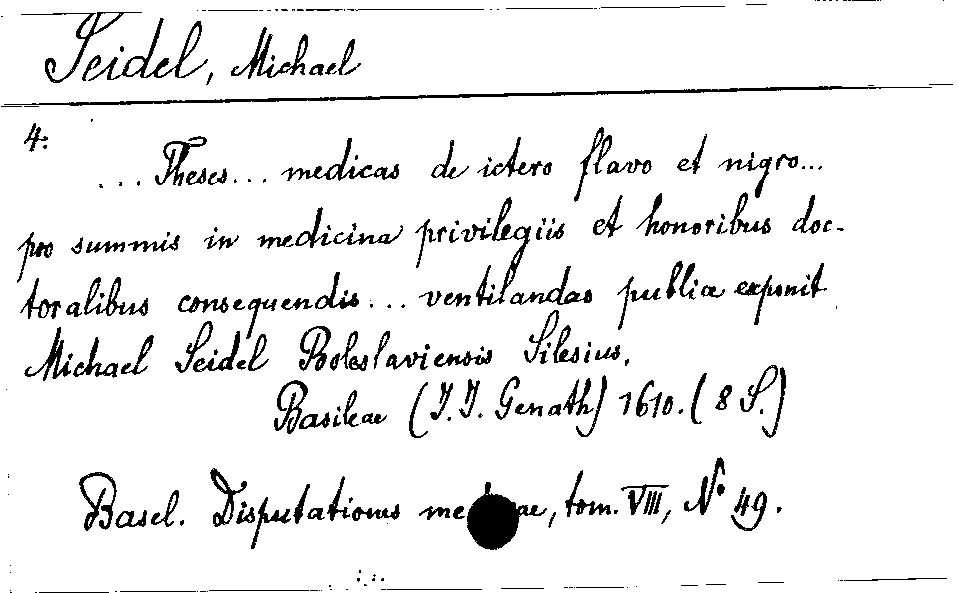 Seidel, Michael
4:
... Theses... medicas de ictero flavo et nigro...
pro summis in medicina privilegiis et honoribus doc-
toralibus consequendis... ventilandas publice exponit
Michael Seidel Boleslaviensis Silesius.
Basileae (J.J. Genath) 1610. (8 S.)
Basel. Disputationes me ae, tom. VIII, No 49.